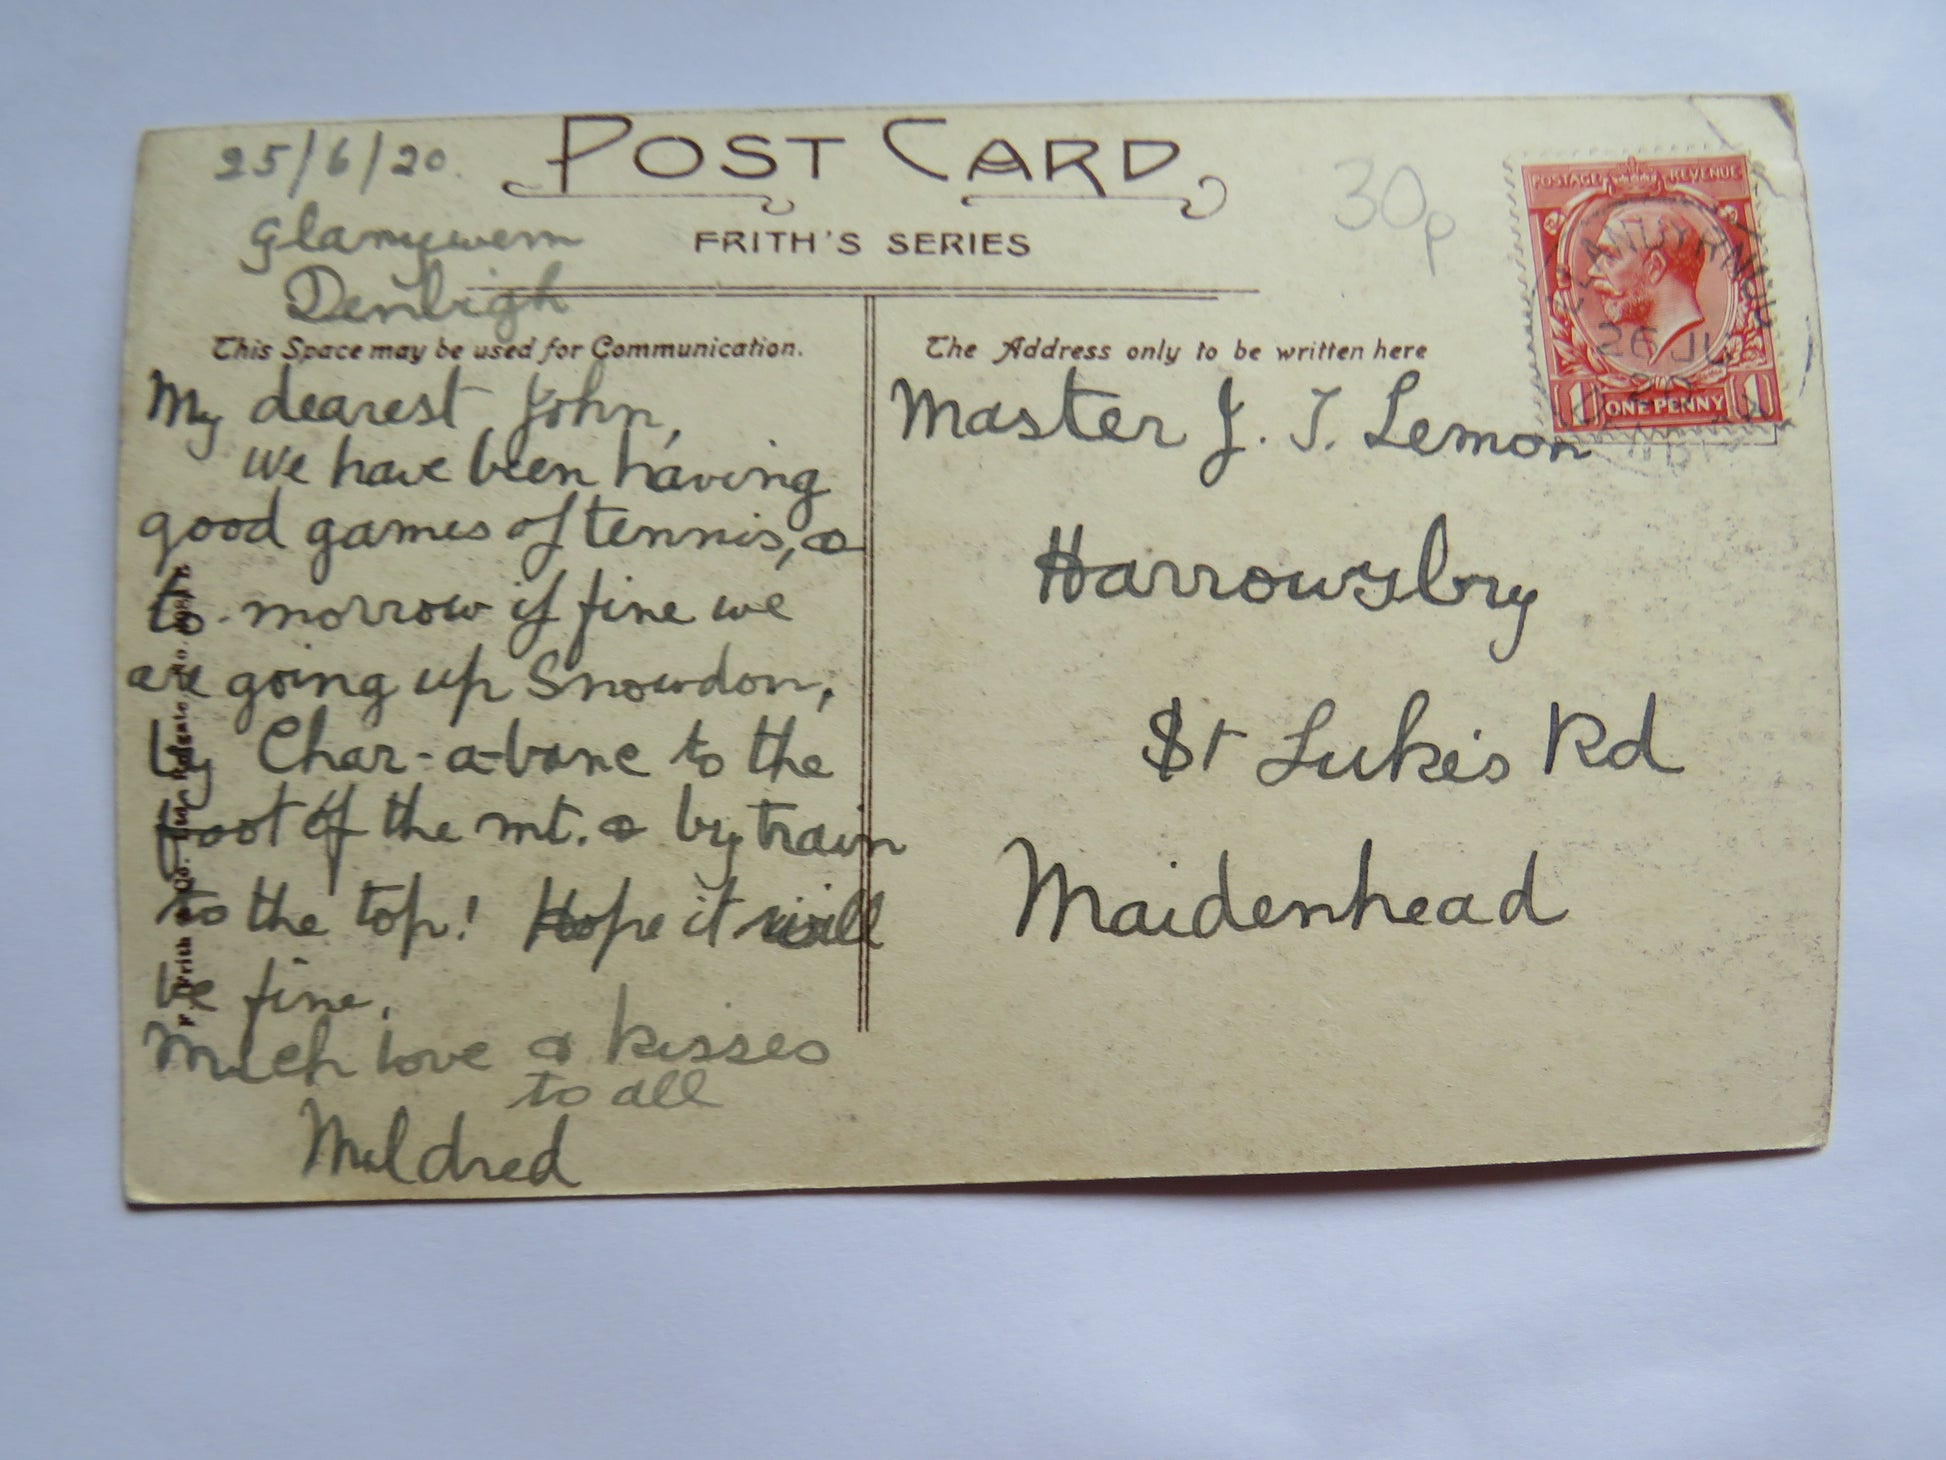 25/6/20.
POST CARD
Glanywern
Denbigh
FRITH'S SERIES
30p
This Space may be used for Communication.
My dearest John,
we have been having
good games of tennis, &
to-morrow if fine we
are going up Snowdon,
by Char-a-banc to the
foot of the mt. & by train
to the top! Hope it will
be fine.
Much love & kisses
to all
Mildred
F. Frith & Co. Ltd., Reigate. No.
The Address only to be written here
Master J. T. Lemon
Harrowsbry
St Luke's Rd
Maidenhead
POSTAGE REVENUE
1 ONE PENNY 1
LLANDYRNOG
26 JU
20